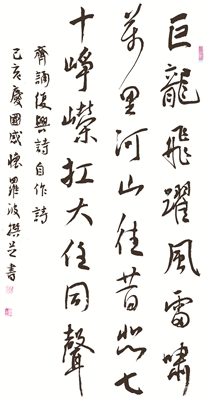 巨龍飛躍風雷嘯
萬里河山往昔悲七
十崢嶸扛大任同聲
齊誦復興詩自作詩
己亥慶國感懷羅波撰並書